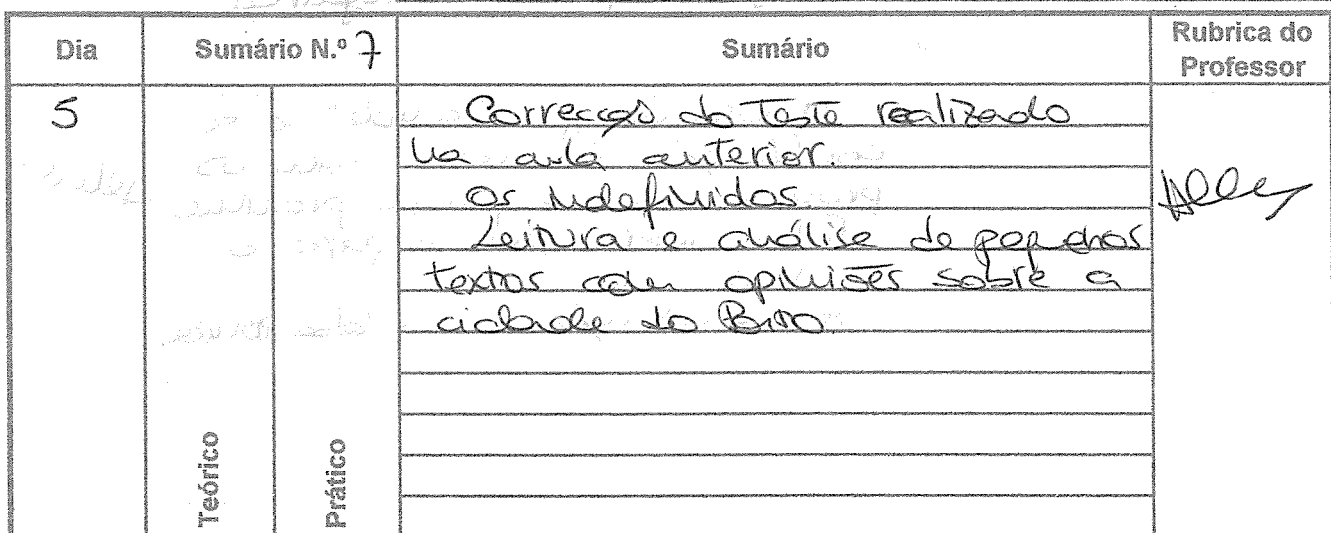 Dia
Sumário N.º 7
Sumário
Rubrica do
Professor
5
Correcção do Teste realizado
na aula anterior.
Os indefinidos.
Leitura e análise de pequenos
textos com opiniões sobre a
cidade do Porto.
Teórico
Prático